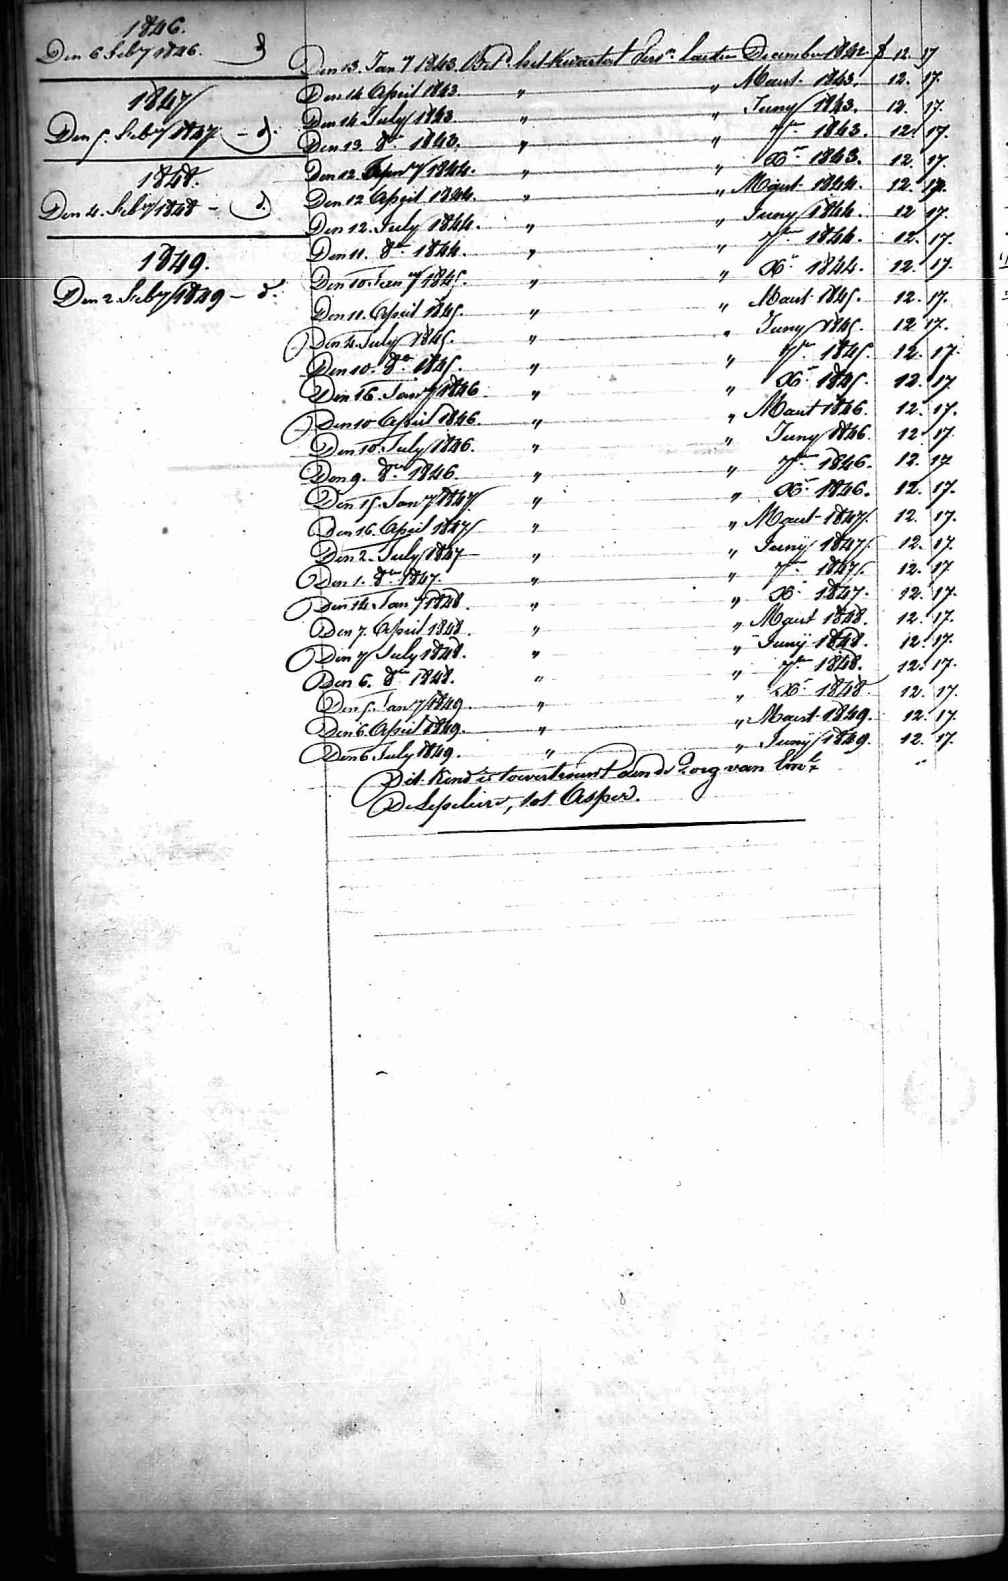 1846.
Den 6 Feb.y 1846. d
1847
Den 5. Feb.y 1847 - d.
1848.
Den 4. Feb.y 1848 - d.
1849.
Den 2 Feb.y 1849 - d.
Den 13. Jan.y 1843. Bet.d het kwartaal laasten December 1842. f 12. 17
Den 14 April 1843. " " Maart 1843. 12. 17.
Den 14. July 1843. " " Juny 1843. 12. 17.
Den 13. 8.er 1843. " " 7.er 1843. 12. 17.
Den 12. Jan.y 1844. " " X.er 1843. 12. 17.
Den 12 April 1844. " " Maart 1844. 12. 17.
Den 12. July 1844. " " Juny 1844. 12 17.
Den 11. 8.er 1844. " " 7.er 1844. 12. 17.
Den 10. Jan.y 1845. " " X.er 1844. 12. 17.
Den 11. April 1845. " " Maart 1845. 12. 17.
Den 4. July 1845. " " Juny 1845. 12 17.
Den 10. 8.er 1845. " " 7.er 1845. 12. 17.
Den 16. Jan.y 1846 " " X.er 1845. 12. 17
Den 10 April 1846. " " Maart 1846. 12. 17.
Den 10. July 1846. " " Juny 1846. 12. 17.
Den 9. 8.er 1846. " " 7.er 1846. 12. 17
Den 15. Jan.y 1847. " " X.er 1846. 12. 17.
Den 16. April 1847 " " Maart 1847. 12. 17.
Den 2. July 1847 " " Junij 1847. 12. 17.
Den 1. 8.er 1847. " " 7.er 1847. 12. 17
Den 14. Jan.y 1848. " " X.er 1847. 12. 17.
Den 7. April 1848. " " Maart 1848. 12. 17.
Den 7 July 1848. " " Junij 1848. 12. 17.
Den 6. 8.er 1848. " " 7.er 1848. 12. 17.
Den 5. Jan.y 1849. " " X.er 1848. 12. 17.
Den 6. April 1849. " " Maart 1849. 12. 17.
Den 6 July 1849. " " Junij 1849. 12. 17.
Dit Kind is toevertrouwt aen de Zorg van
tot Asper.